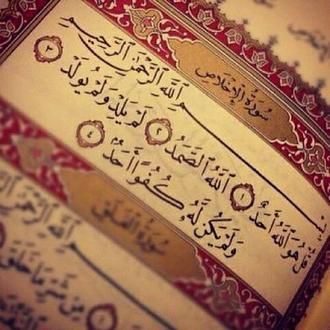 سُورَةُ الإِخْلَاصِ
بِسْمِ ٱللَّهِ ٱلرَّحْمَٰنِ ٱلرَّحِيمِ
قُلْ هُوَ ٱللَّهُ أَحَدٌ ١ ٱللَّهُ ٱلصَّمَدُ ٢ لَمْ يَلِدْ وَلَمْ يُولَدْ ٣
وَلَمْ يَكُن لَّهُۥ كُفُوًا أَحَدٌ ٤
سُورَةُ الفَلَقِ
ٱللَّهِ ٱلرَّحْمَٰنِ
مِن شَرِّ مَا خَلَقَ